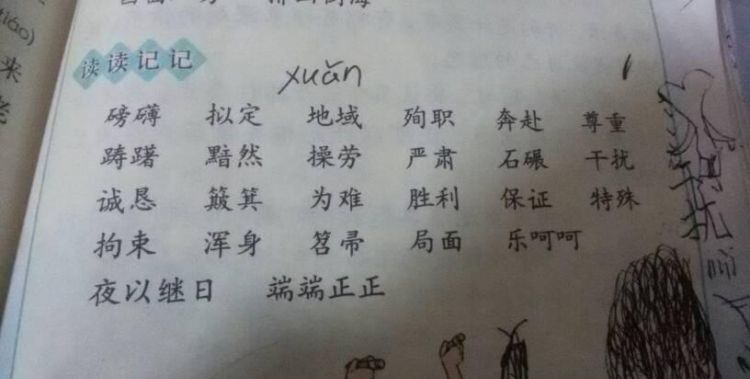 (tiáo)
来
读读记记
xuǎn
磅礴 拟定 地域 殉职 奔赴 尊重
踌躇 黯然 操劳 严肃 石碾 干扰
诚恳 簸箕 为难 胜利 保证 特殊
拘束 浑身 笤帚 局面 乐呵呵
夜以继日 端端正正